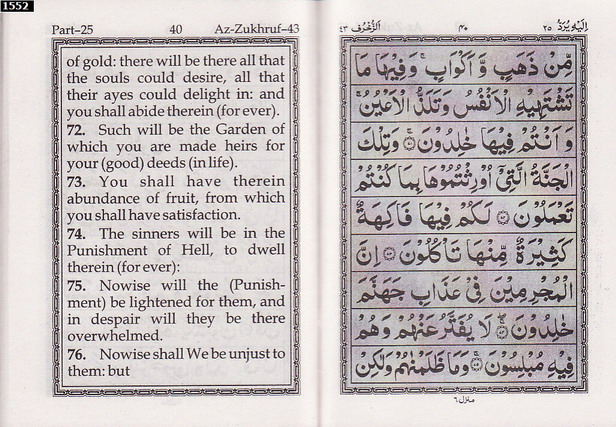 1552
Part-25 40 Az-Zukhruf-43
of gold: there will be there all that
the souls could desire, all that
their ayes could delight in: and
you shall abide therein (for ever).
72. Such will be the Garden of
which you are made heirs for
your (good) deeds (in life).
73. You shall have therein
abundance of fruit, from which
you shall have satisfaction.
74. The sinners will be in the
Punishment of Hell, to dwell
therein (for ever):
75. Nowise will the (Punish-
ment) be lightened for them, and
in despair will they be there
overwhelmed.
76. Nowise shall We be unjust to
them: but
اِلَيْهِ يُرَدُّ ٢٥ ٤٠ اَلزُّخْرُف ٤٣
مِّنْ ذَهَبٍ وَّ اَكْوَابٍ ۚ وَفِيْهَا مَا
تَشْتَهِيْهِ الْاَنْفُسُ وَتَلَذُّ الْاَعْيُنُ ۚ
وَ اَنْتُمْ فِيْهَا خٰلِدُوْنَ ۞ وَتِلْكَ
الْجَنَّةُ الَّتِيْٓ اُوْرِثْتُمُوْهَا بِمَا كُنْتُمْ
تَعْمَلُوْنَ ۞ لَكُمْ فِيْهَا فَاكِهَةٌ
كَثِيْرَةٌ مِّنْهَا تَاْكُلُوْنَ ۞ اِنَّ
الْمُجْرِمِيْنَ فِيْ عَذَابِ جَهَنَّمَ
خٰلِدُوْنَ ۞ لَا يُفَتَّرُ عَنْهُمْ وَهُمْ
فِيْهِ مُبْلِسُوْنَ ۞ وَمَا ظَلَمْنٰهُمْ وَلٰكِنْ
منزل ٦